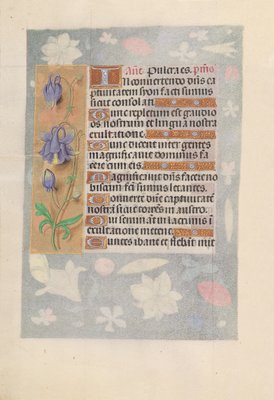 Añt. Pulcra es. p̃mus
In convertendo dñs ca
ptivitatem syon facti sumus
sicut consolati
Tunc repletum est gaudio
os nostrum et lingua nostra
exultatione.
Tunc dicent inter gentes
magnificavit dominus fa
cere cum eis
Magnificavit dñs facere no
biscum facti sumus letantes.
Converte dñe captivitatē
nostrā sicut torrēs in austro.
Qui seminant in lacrimis ī
exultatione metent.
Euntes ibant et flebāt mit